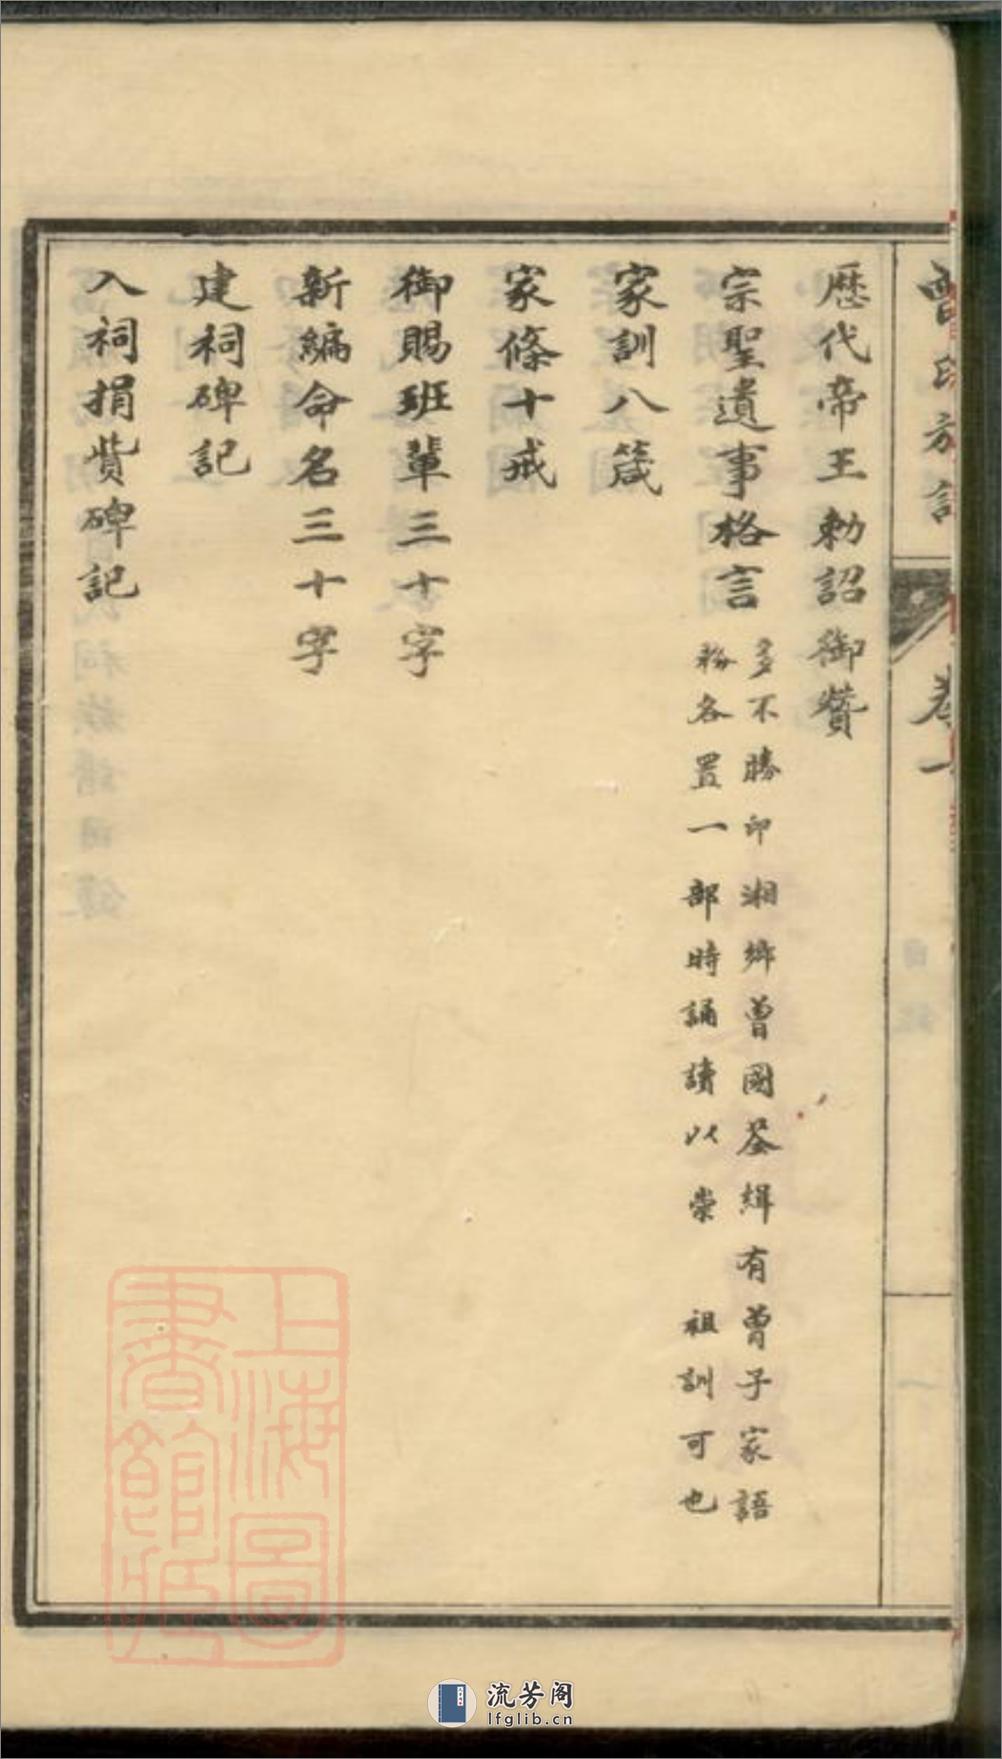 曾氏族譜
卷一
歷代帝王勅詔御贊
宗聖遺事格言
多不勝印湘鄉曾國荃緝有曾子家語
務各置一部時誦讀以崇 祖訓可也
家訓八箴
家條十戒
御賜班輩三十字
新編命名三十字
建祠碑記
入祠捐貲碑記
上海圖
書館藏
流芳阁
lfglib.cn